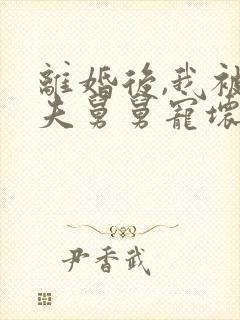 離婚後,我被
夫舅舅寵壞
尹香武